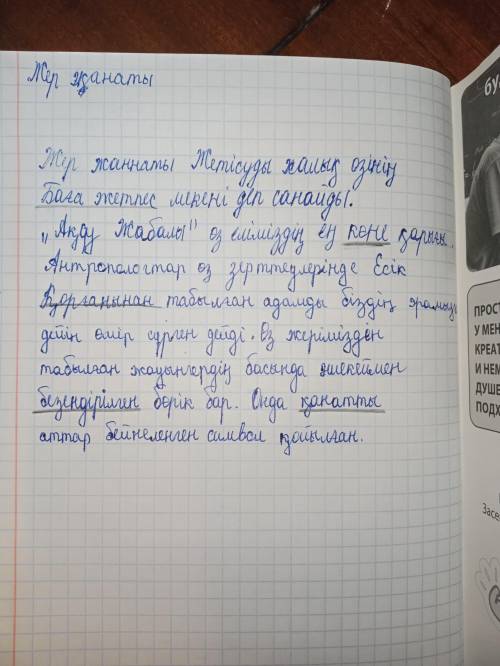 Жер жанаты
Жер жаннаты Жетісуды халық өзінің
Баға жетпес мекені деп санайды.
„Ақау Жабалы" өз еліміздің ең көне қаруы.
Антропологтар өз зерттеулерінде Есік
Қорғанынан табылған адамды біздің эрамызға
дейін өмір сүрген дейді. Өз жерімізден
табылған жауынгердің басында әшекеймен
безендірілген бөрік бар. Онда қанатты
аттар бейнеленген символ қойылған.
бу
ПРОСТ
У МЕН
КРЕАТ
И НЕМ
ДУШЕ
ПОДХ
Засе